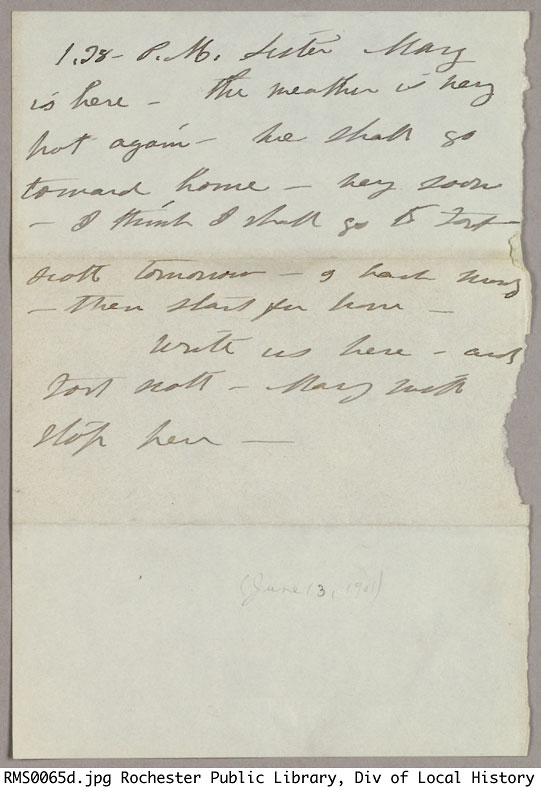 1.28 - P.M. Sister Mary
is here - the weather is very
hot again - We shall go
toward home - very soon
- I think I shall go to Fort
Scott tomorrow - & back
- then start for home -
Write us here - and
Fort Scott - Mary will
stop here -
(June 13, 1901)
RMS0065d.jpg Rochester Public Library, Div of Local History